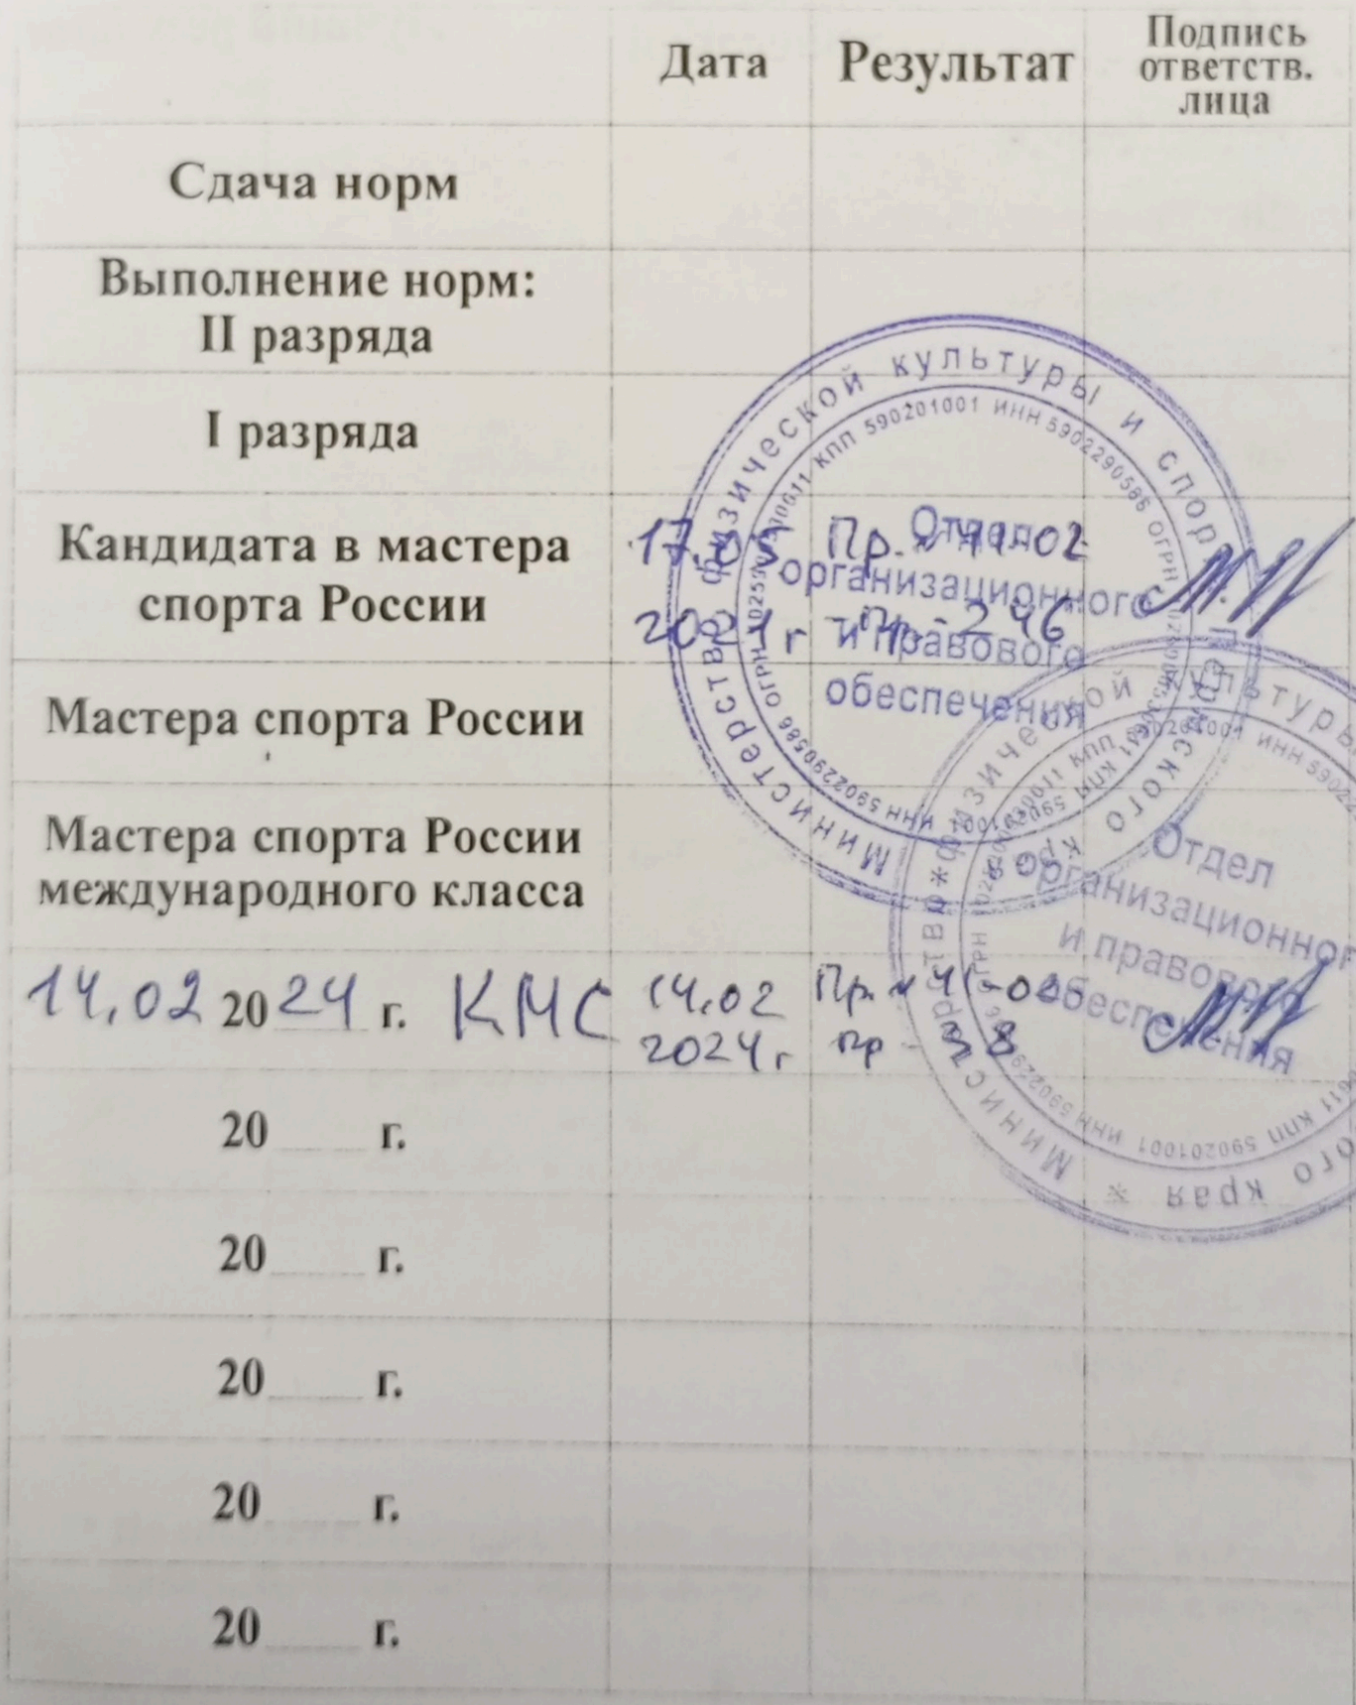 Дата
Результат
Подпись
ответств.
лица
Сдача норм
Выполнение норм:
II разряда
I разряда
Кандидата в мастера
спорта России
17.05
2021 г
Пр. 41-02
246
Мастера спорта России
Мастера спорта России
международного класса
14.02 2024 г. КМС
14.02
2024 г
Пр. 41-02
пр 38
20 г.
20 г.
20 г.
20 г.
20 г.
Министерство физической культуры и спорта
КПП 590201001 ИНН 5902290586 ОГРН
Отдел
организационного
и правового
обеспечения
Министерство физической культуры
края *
КПП 590201001 ИНН
Отдел
организационного
и правового
обеспечения